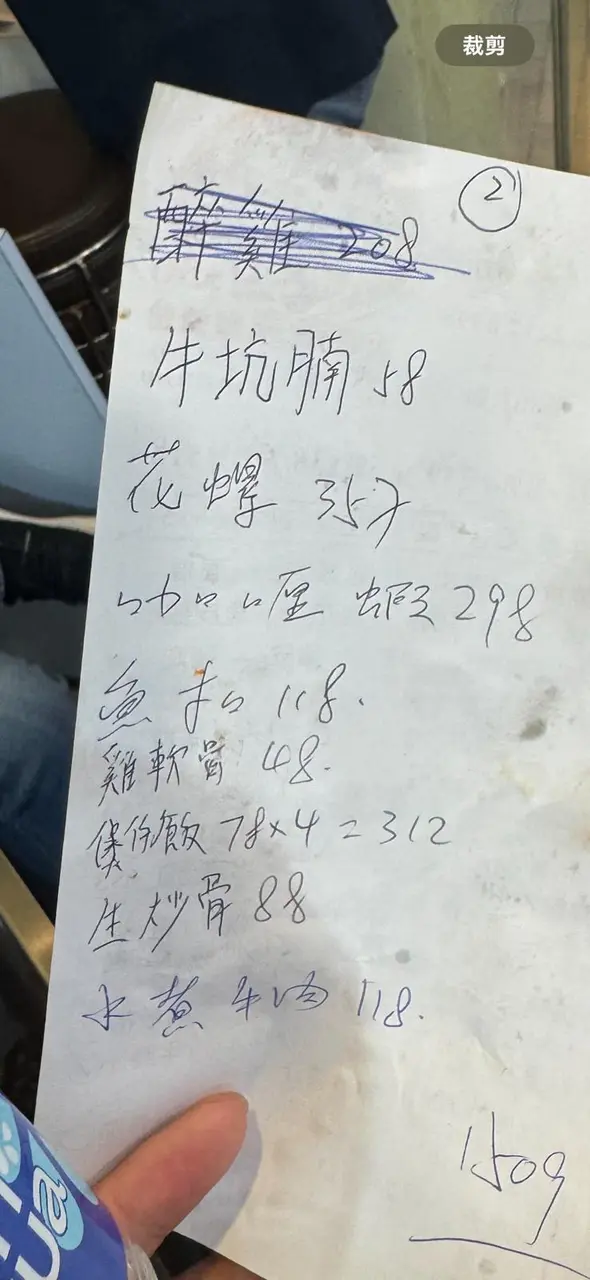 裁剪
②
醉雞 208
牛坑腩 58
花螺 357
咖喱 蝦 298
魚扣 118.
雞軟骨 48.
煲仔飯 78×4=312
生炒骨 88
水煮牛肉 118.
1509